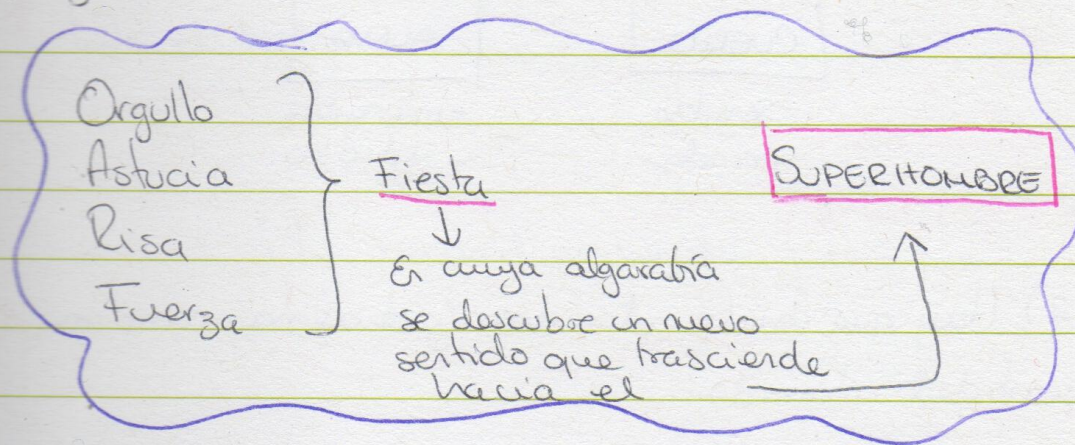 Orgullo
Astucia
Risa
Fuerza
Fiesta
En cuya algarabía
se descubre un nuevo
sentido que trasciende
hacia el
SUPERHOMBRE